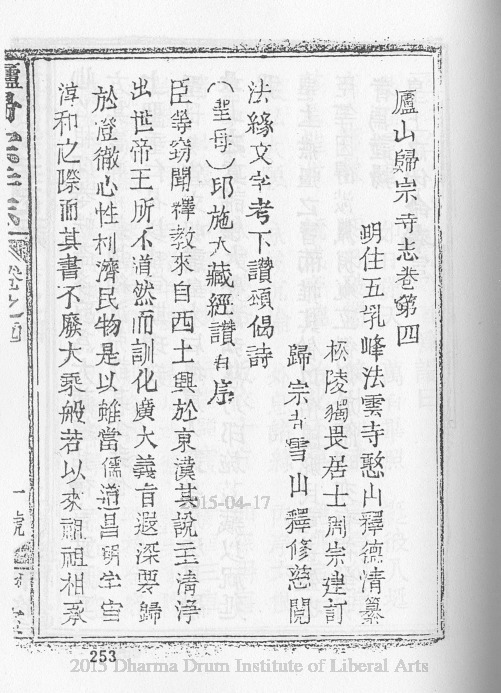 廬山歸宗寺志卷第四
明住五乳峰法雲寺憨山釋德清纂
松陵獨畏居士周宗建訂
歸宗寺雪山釋修慈閱
法緣文字考下讚頌偈詩
(聖母)印施大藏經讚有序
臣等窃聞釋教來自西土興於東漢其說主清淨
出世帝王所不道然而訓化廣大義旨遐深要歸
於澄徹心性利濟民物是以雖當儒道昌明宇宙
淳和之際而其書不廢大乘般若以來祖祖相承
卷之四
一
253
2015-04-17
2015 Dharma Drum Institute of Liberal Arts